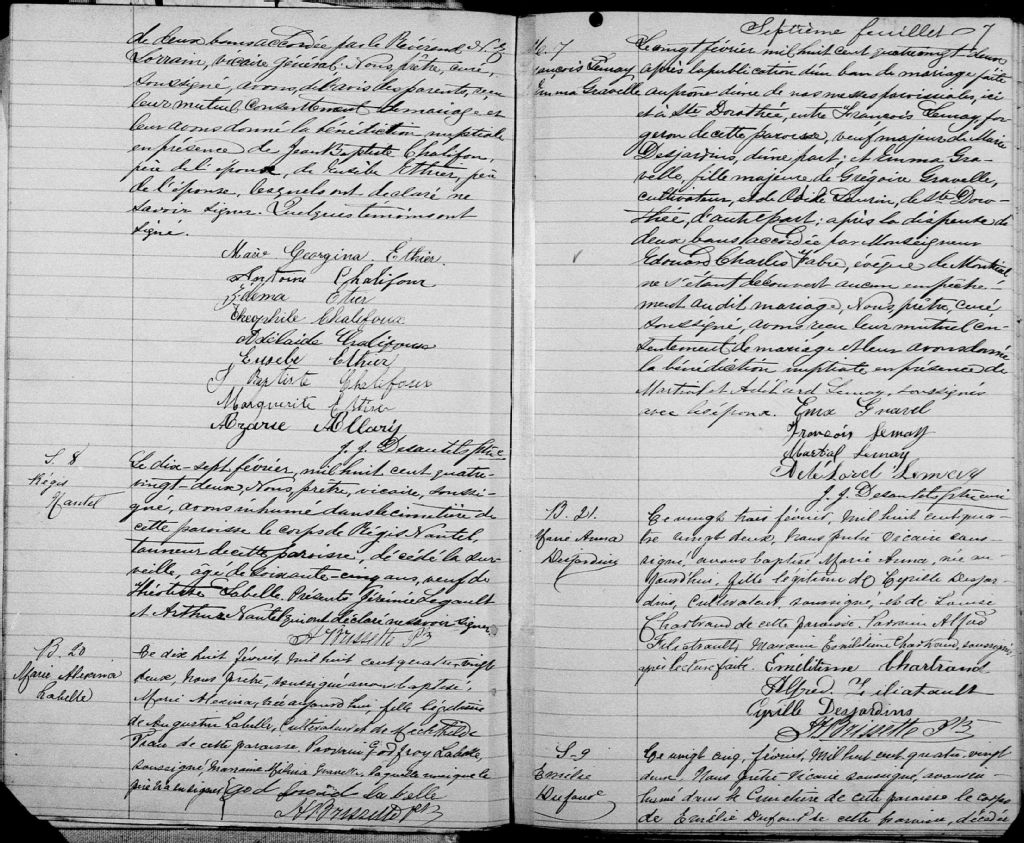 de deux bans accordée par le Révérend
Lorrain, vicaire général: Nous, prêtre, curé,
soussigné, avons, de l'avis des parents, reçu
leur mutuel consentement de mariage et
leur avons donné la bénédiction nuptiale
en présence de Jean Baptiste Chalifou,
père de l'époux, de Eusèbe Ethier, père
de l'épouse, lesquels ont déclaré ne
savoir signer. Quelques témoins ont
signé.
Marie Georgina Ethier
Antoine Chalifour
Zelema Etier
Theophile Chalifoux
Adélaide Chalifoux
Eusebe Ethier
J Baptiste Chalifour
Marguerite Ethier
Azarie Allary
J. J. Desautels ptre
S. 8
Régis
Nantel
Le dix-sept février, mil huit cent quatre-
vingt-deux, Nous, prêtre, vicaire, soussi-
gné, avons inhumé dans le cimetière de
cette paroisse le corps de Régis Nantel,
tanneur de cette paroisse, décédé la sur-
veille, âgé de soixante-cinq ans, veuf de
Théotiste Labelle. Présents Jérémie Legault
et Arthur Nantel qui ont déclaré ne savoir signer.
A Brissette
B. 20
Marie Alexina
Labelle
Ce dix huit février, mil huit cent quatre vingt
deux, nous prêtre, soussigné avons baptisé
Marie Alexina, née aujourd'hui, fille légitime
de Augustin Labelle, cultivateur et de Mathilde
de cette paroisse. Parrain Godfroy Labelle,
soussigné, marraine Mélina laquelle ainsi que le
père n'a su signer
God froid labelle
A Brissette
Septième feuillet 7
M. 7
François Lemay
Emma Gravelle
Le vingt février mil huit cent quatrevingt-deux
après la publication d'un ban de mariage faite
au prône d'une de nos messes paroissiales, ici
et à Ste Dorothée, entre François Lemay, for-
geron de cette paroisse, veuf majeur de Marie
Desjardins, d'une part; et Emma Gra-
velle, fille majeure de Grégoire Gravelle,
cultivateur, et de Odile Laurin, de Ste Doro-
thée, d'autre part; après la dispense de
deux bans accordée par Monseigneur
Edouard Charles Fabre, évêque de Montréal
ne s'étant découvert aucun empêche-
ment au dit mariage, Nous, prêtre, curé
soussigné, avons reçu leur mutuel con-
sentement de mariage et leur avons donné
la bénédiction nuptiale en présence de
Martial et Adélard Lemay, soussignés
avec les époux. Ema Gravel
François Lemay
Martial Lemay
J. J. Desautels ptre curé
B. 21.
Marie Anna
Desjardins
Ce vingt trois février, mil huit cent qua-
tre vingt deux, Nous prêtre vicaire sous-
signé, avons baptisé Marie Anna, née au
jourd'hui, fille légitime de Cyrille Desjar-
dins, cultivateur, soussigné, et de Louise
Chartrand de cette paroisse. Parrain Alfred
Filiatrault, Marraine Emélitime Chartrand, soussignés,
après lecture faite. Emélitime Chartrand
Alfred Filiatault
Cyrille Desjardins
A Brissette
S. 9
Emélie
Dufour
Ce vingt cinq, février, mil huit cent quatre vingt
deux, Nous prêtre vicaire soussigné, avons in-
humé dans le Cimetière de cette paroisse le corps
de Emélie Dufour de cette paroisse, décédée